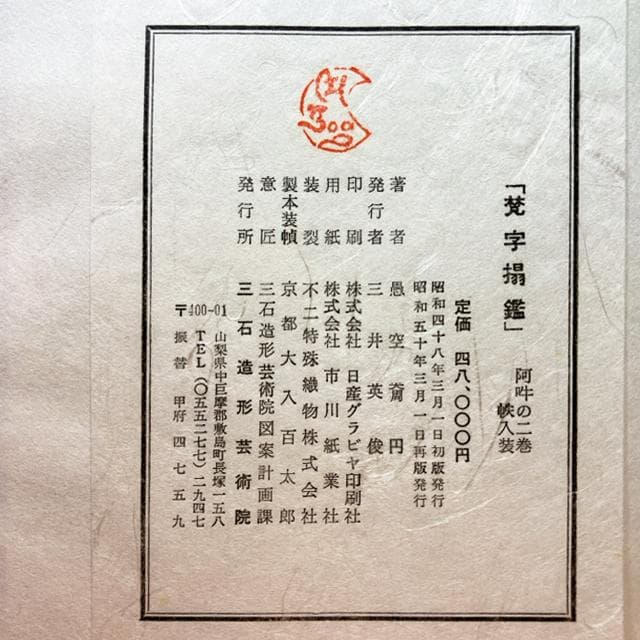 「梵字搨鑑」
阿吽の二巻
帙入装
定価 四八、〇〇〇円
昭和四十八年三月一日初版発行
昭和五十年三月一日再版発行
著者 愚空斎円
発行者 三井英俊
印刷 株式会社 日産グラビヤ印刷社
用紙 株式会社 市川紙業社
装裂 不二特殊織物株式会社
製本装幀 京都大入百太郎
意匠 三石造形芸術院図案計画課
発行所 三石造形芸術院
山梨県中巨摩郡敷島町長塚一五八
〒400-01 TEL(〇五五二七七)二九四七
振替 甲府四七五九